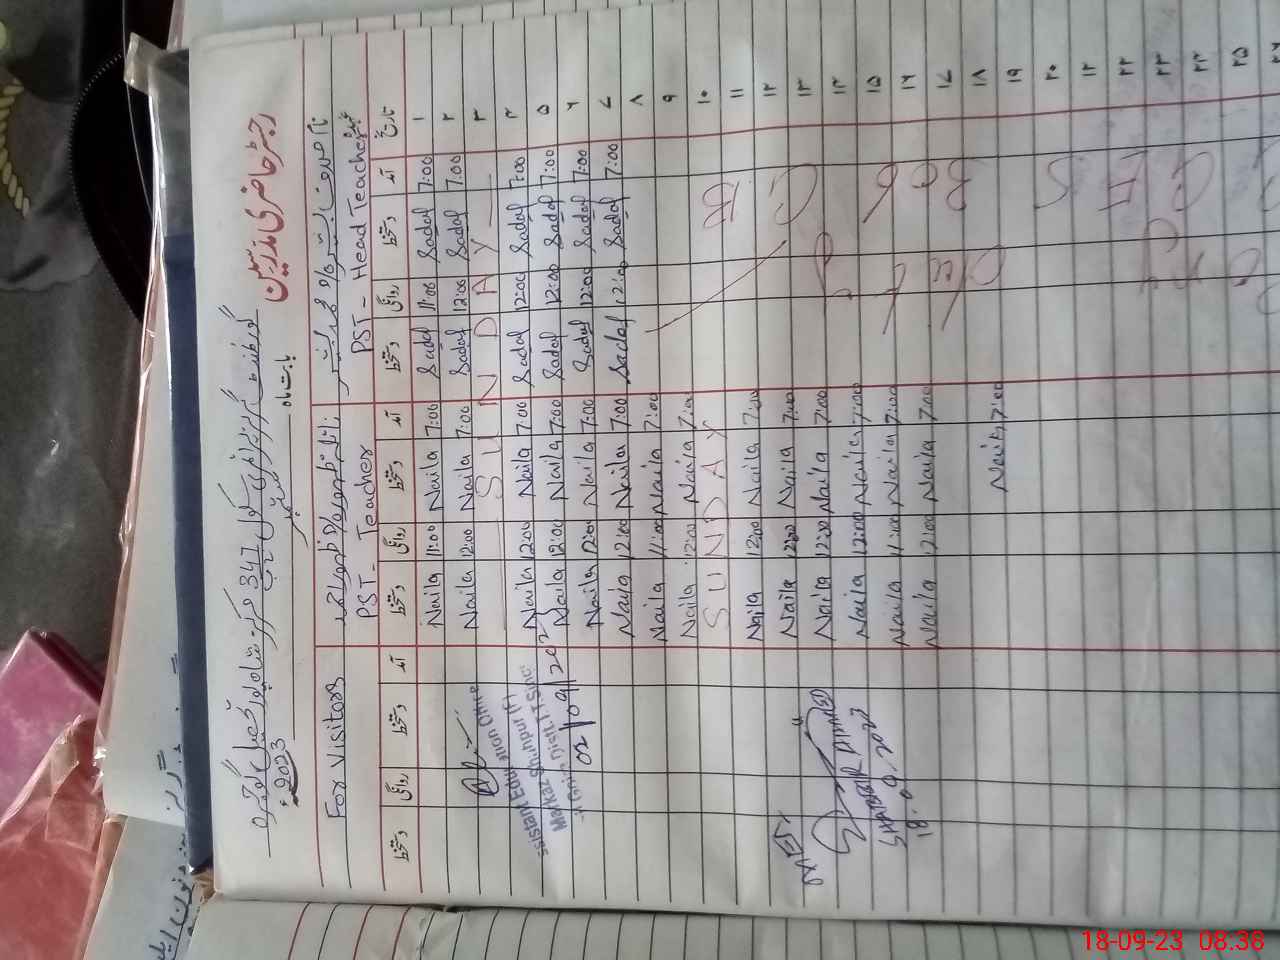 رجسٹر حاضری مدرسین
گورنمنٹ گرلز پرائمری سکول 347 ج ب
تحصیل گوجرہ
بابت ماہ ستمبر 2023
PST - Head Teacher
PST - Teacher
For Visitors
تاریخ آمد دستخط روانگی دستخط آمد دستخط روانگی دستخط آمد دستخط روانگی دستخط
۱ 7:00 Sadaf 11:00 Sadaf 7:00 Naila 11:00 Naila
۲ 7:00 Sadaf 12:00 Sadaf 7:00 Naila 12:00 Naila
۳ SUNDAY
۴ 7:00 Sadaf 12:00 Sadaf 7:00 Naila 12:00 Naila
۵ 7:00 Sadaf 12:00 Sadaf 7:00 Naila 12:00 Naila
۶ 7:00 Sadaf 12:00 Sadaf 7:00 Naila 12:00 Naila
۷ 7:00 Sadaf 12:00 Sadaf 7:00 Naila 12:00 Naila
۸ 7:00 Naila 11:00 Naila
۹ 7:00 Naila 12:00 Naila
۱۰ SUNDAY
۱۱ 7:00 Naila 12:00 Naila
۱۲ 7:00 Naila 12:00 Naila
۱۳ 7:00 Naila 12:00 Naila
۱۴ 7:00 Naila 12:00 Naila
۱۵ 7:00 Naila 11:00 Naila
۱۶ 7:00 Naila 12:00 Naila
۱۷
۱۸ 7:00 Naila
۱۹
۲۰
۲۲
۲۳
۲۴
۲۵
Assistant Education Office
Markaz Shahpur (F)
Distt. T.T Singh
02/09/2023
SHABBIR AHMED
18.09.2023
18-09-23 08:38